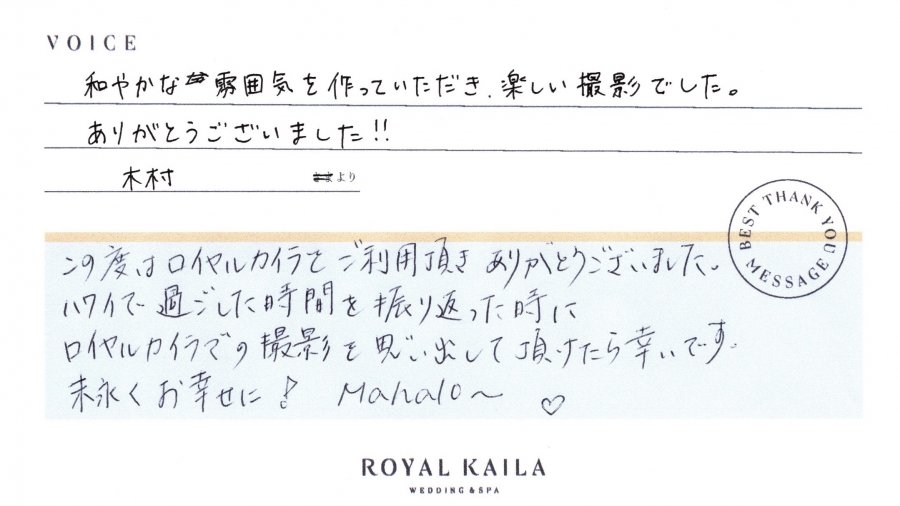 VOICE
和やかな雰囲気を作っていただき、楽しい撮影でした。
ありがとうございました!!
木村 より
BEST THANK YOU MESSAGE
この度はロイヤルカイラをご利用頂きありがとうございました。
ハワイで過ごした時間を振り返った時に
ロイヤルカイラでの撮影を思い出して頂けたら幸いです。
末永くお幸せに♪ Mahalo〜 ♡
ROYAL KAILA
WEDDING & SPA